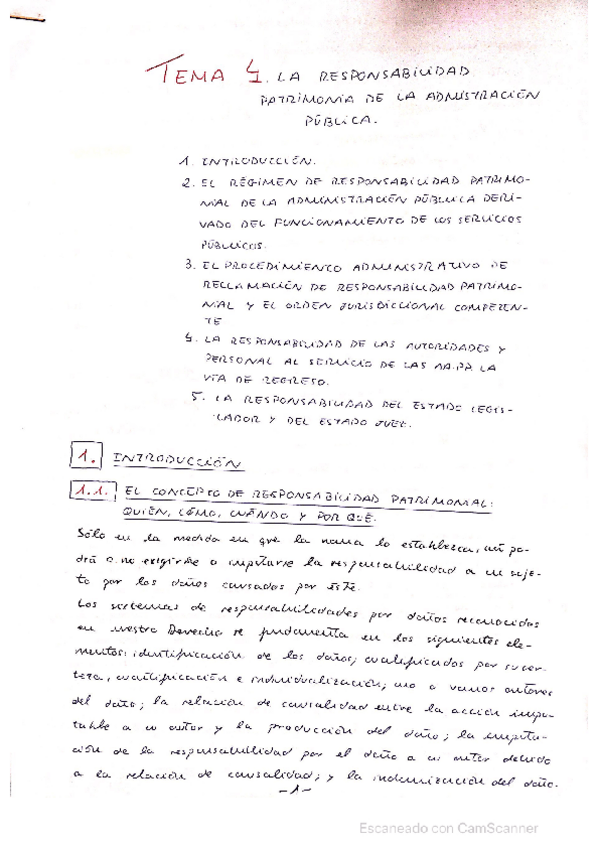 TEMA 4. LA RESPONSABILIDAD
PATRIMONIA DE LA ADMISTRACIÓN
PÚBLICA.
1. INTRODUCCIÓN.
2. EL RÉGIMEN DE RESPONSABILIDAD PATRIMO-
NIAL DE LA ADMINISTRACIÓN PÚBLICA DERI-
VADO DEL FUNCIONAMIENTO DE LOS SERVICIOS
PÚBLICOS.
3. EL PROCEDIMIENTO ADMINISTRATIVO DE
RECLAMACIÓN DE RESPONSABILIDAD PATRIMO-
NIAL Y EL ORDEN JURISDICCIONAL COMPETEN-
TE
4. LA RESPONSABILIDAD DE LAS AUTORIDADES Y
PERSONAL AL SERVICIO DE LAS AA.PP. LA
VÍA DE REGRESO.
5. LA RESPONSABILIDAD DEL ESTADO LEGIS-
LADOR Y DEL ESTADO JUEZ.
1. INTRODUCCIÓN
1.1. EL CONCEPTO DE RESPONSABILIDAD PATRIMONIAL:
QUIÉN, CÓMO, CUÁNDO Y POR QUÉ.
Sólo en la medida en que la norma lo establezca, así po-
drá o no exigirse o imputarse la responsabilidad a un suje-
to por los daños causados por éste.
Los sistemas de responsabilidades por daños reconocidos
en nuestro Derecho se fundamenta en los siguientes ele-
mentos: identificación de los daños, cualificados por su cer-
teza, cuantificación e individualización; uno o varios autores
del daño; la relación de causalidad entre la acción impu-
table a un autor y la producción del daño; la imputa-
ción de la responsabilidad por el daño a un autor debido
a la relación de causalidad; y la indemnización del daño.
-1-
Escaneado con CamScanner